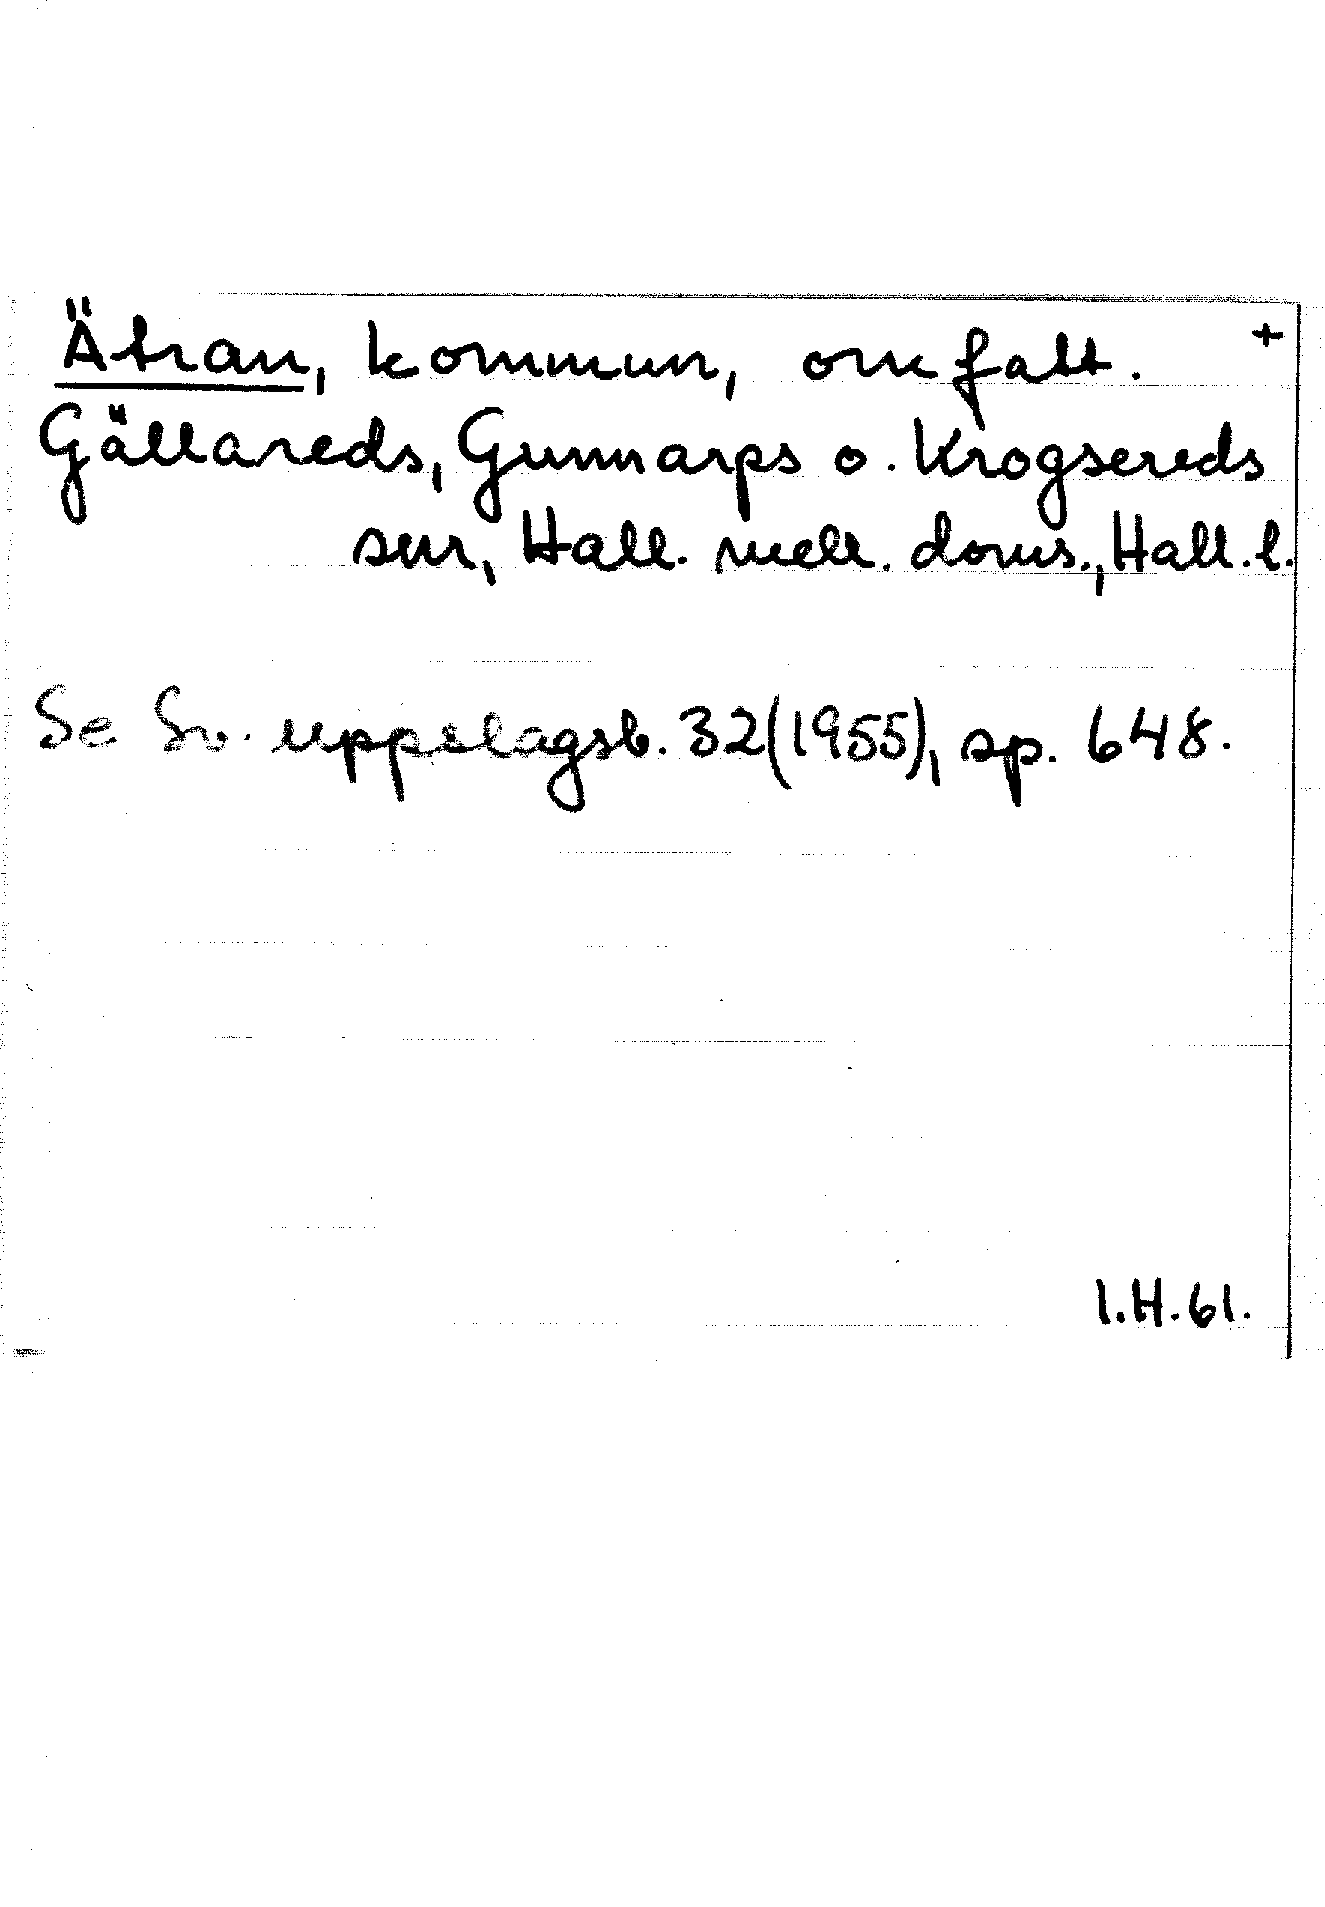 Ätran, kommun, omfatt. +
Gällareds, Gunnarps o. Krogsereds
snr, Hall. mell. doms., Hall. l.
Se Sv. uppslagsb. 32(1955), sp. 648.
I.H.61.